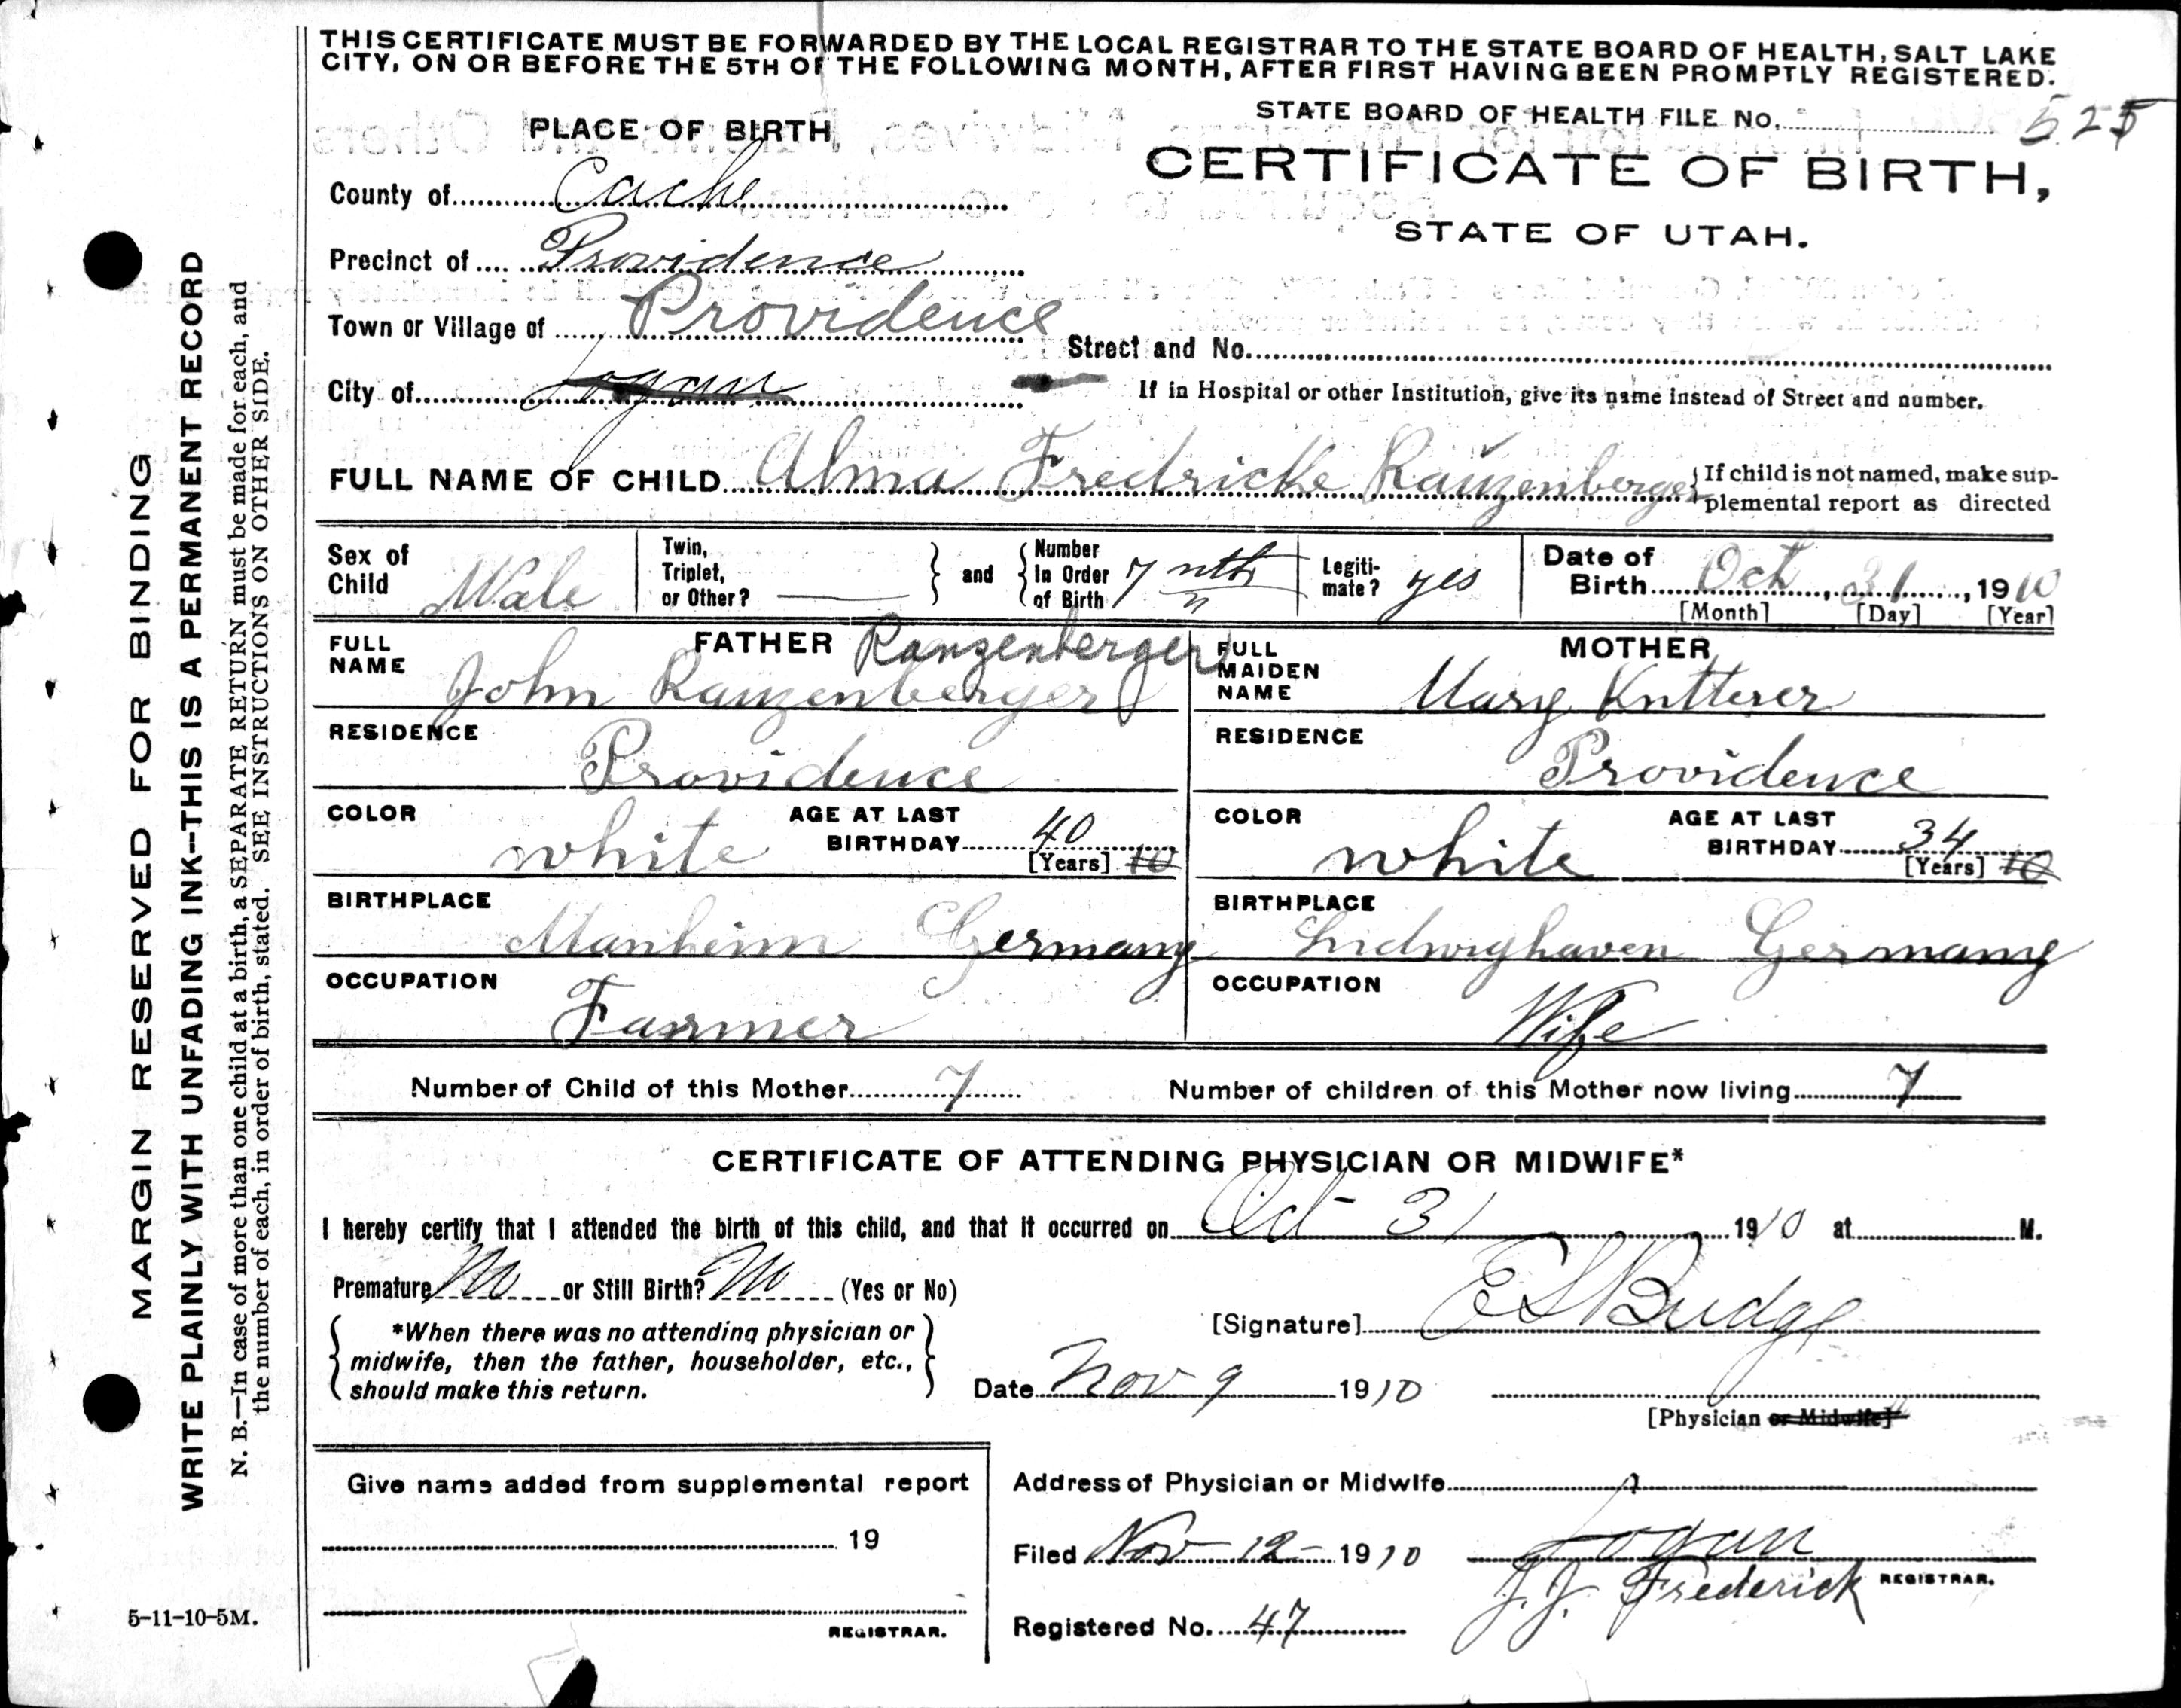 THIS CERTIFICATE MUST BE FORWARDED BY THE LOCAL REGISTRAR TO THE STATE BOARD OF HEALTH, SALT LAKE
CITY, ON OR BEFORE THE 5TH OF THE FOLLOWING MONTH, AFTER FIRST HAVING BEEN PROMPTLY REGISTERED.
STATE BOARD OF HEALTH FILE No. 525
PLACE OF BIRTH
CERTIFICATE OF BIRTH,
STATE OF UTAH.
County of Cache
Precinct of Providence
Town or Village of Providence
Street and No.
City of Logan
If in Hospital or other Institution, give its name instead of Street and number.
FULL NAME OF CHILD Alma Fredricke Ranzenberger
If child is not named, make sup-
plemental report as directed
Sex of
Child Male
Twin,
Triplet,
or Other?
and
Number
In Order
of Birth 7
Legiti-
mate? yes
Date of
Birth Oct 31, 1910
[Month] [Day] [Year]
FATHER
FULL
NAME
Ranzenberger
John Ranzenberger
MOTHER
FULL
MAIDEN
NAME
Mary Kutterer
RESIDENCE
Providence
RESIDENCE
Providence
COLOR
white
AGE AT LAST
BIRTHDAY 40
[Years] 10
COLOR
white
AGE AT LAST
BIRTHDAY 34
[Years] 10
BIRTHPLACE
Manheim Germany
BIRTHPLACE
Ludwighaven Germany
OCCUPATION
Farmer
OCCUPATION
Wife
Number of Child of this Mother 7
Number of children of this Mother now living 7
CERTIFICATE OF ATTENDING PHYSICIAN OR MIDWIFE*
I hereby certify that I attended the birth of this child, and that it occurred on Oct 31 1910 at M.
Premature No or Still Birth? No (Yes or No)
*When there was no attending physician or
midwife, then the father, householder, etc.,
should make this return.
[Signature] E S Budge
Date Nov 9 1910
[Physician or Midwife]
Give name added from supplemental report
19
REGISTRAR.
Address of Physician or Midwife
Logan
Filed Nov 12 1910
J. J. Frederick REGISTRAR.
Registered No. 47
5-11-10-5M.
MARGIN RESERVED FOR BINDING
WRITE PLAINLY WITH UNFADING INK--THIS IS A PERMANENT RECORD
N. B.—In case of more than one child at a birth, a SEPARATE RETURN must be made for each, and
the number of each, in order of birth, stated. SEE INSTRUCTIONS ON OTHER SIDE.